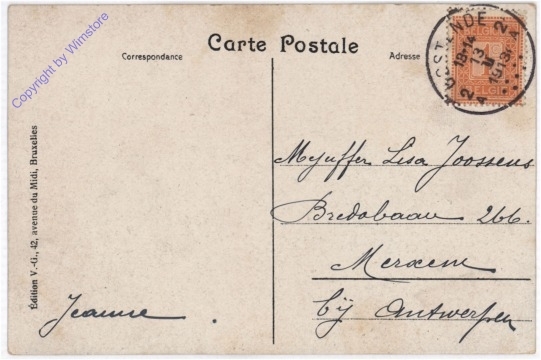 Copyright by Wimstore
Carte Postale
Correspondance
Adresse
OOSTENDE 2
13
1913
2 A
BELGI
Mejuffer Lisa Joossens
Bredabaan 266.
Merxem
bij Antwerpen
Jeanne
Édition V.-G., 42, avenue du Midi, Bruxelles